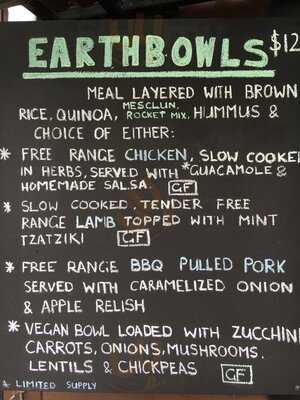 EARTHBOWLS $12
MEAL LAYERED WITH BROWN
RICE, QUINOA, MESCLUN, ROCKET MIX, HUMMUS &
CHOICE OF EITHER:
* FREE RANGE CHICKEN, SLOW COOKED
IN HERBS, SERVED WITH *GUACAMOLE &
HOMEMADE SALSA. GF
* SLOW COOKED, TENDER FREE
RANGE LAMB TOPPED WITH MINT
TZATZIKI GF
* FREE RANGE BBQ PULLED PORK
SERVED WITH CARAMELIZED ONION
& APPLE RELISH
* VEGAN BOWL LOADED WITH ZUCCHINI
CARROTS, ONIONS, MUSHROOMS,
LENTILS & CHICKPEAS GF
* LIMITED SUPPLY